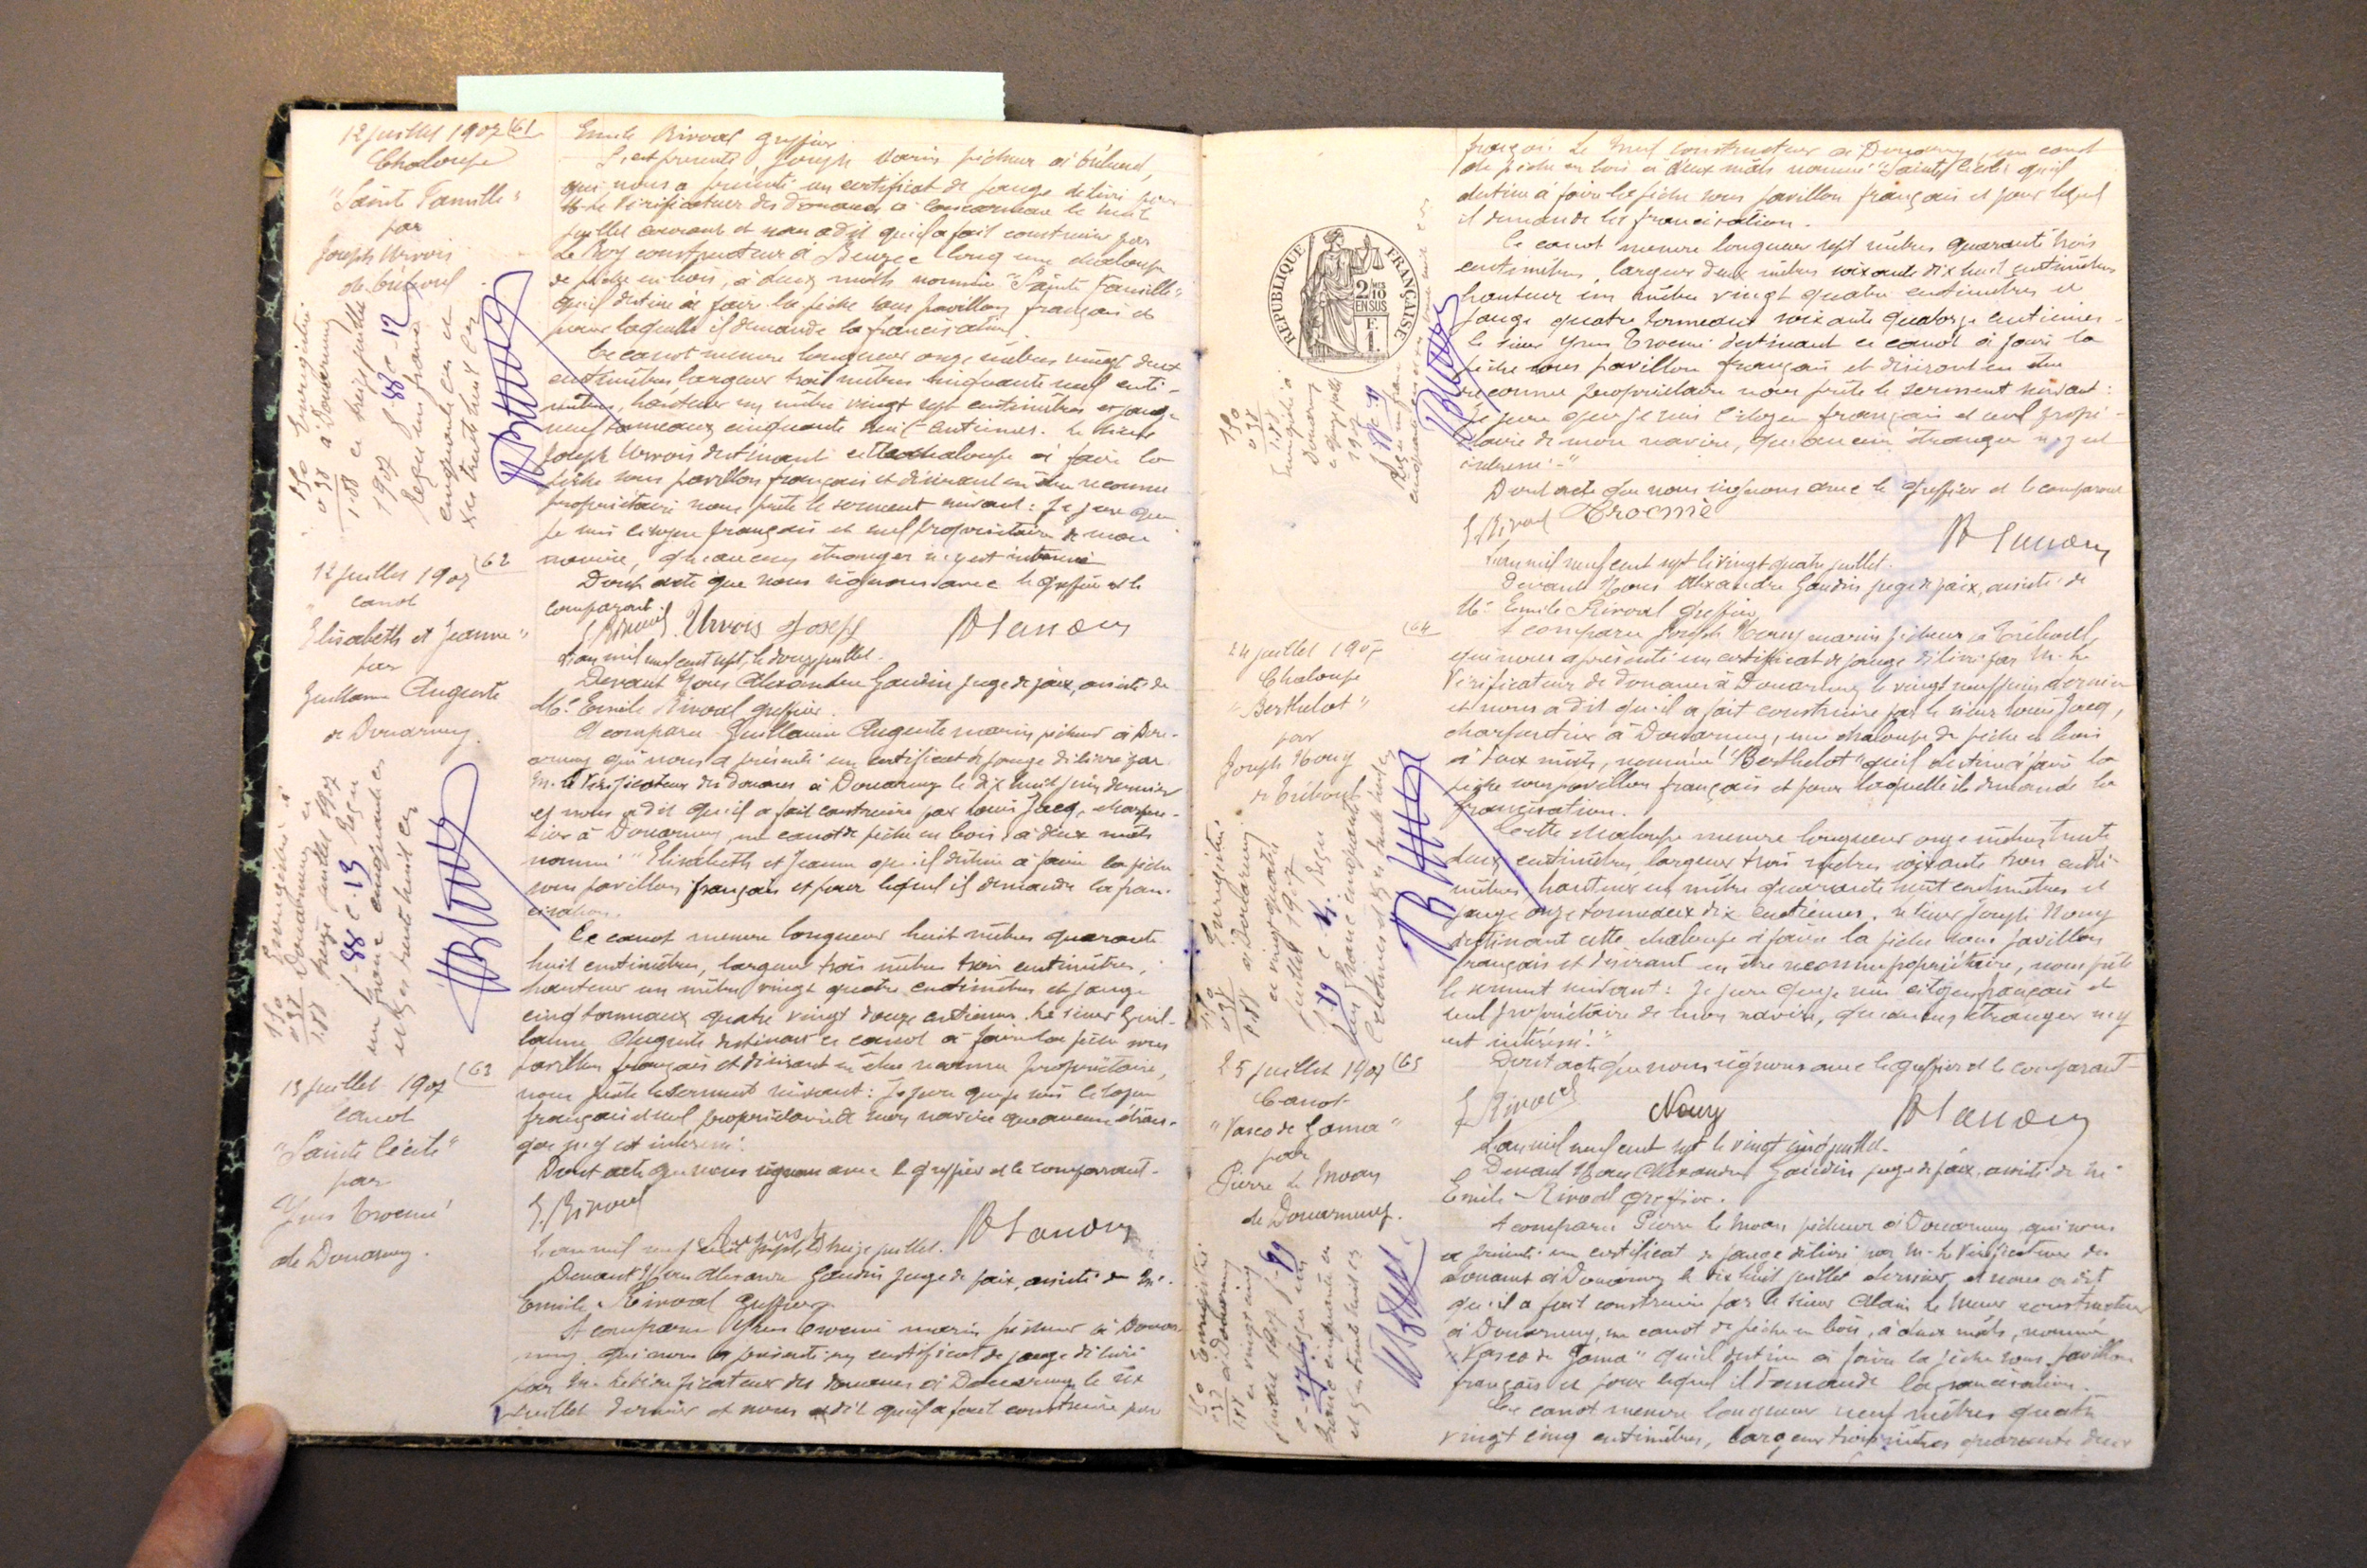 12 juillet 1907 (61
Chaloupe
"Sainte Famille"
par
Joseph Urvois
de Tréboul
Enregistré
à Douarnenez
ce treize juillet
1907 f. 88 c. 12
Reçu un franc
cinquante ces et
xes trente huit ces
1.50
0.38
1.88
12 juillet 1907 (62
canot
"Elisabeth et Jeanne"
par
Guillaume Auguste
de Douarnenez.
Enregistré à
Douarnenez ce
treize juillet 1907
f. 88 c. 13 Reçu
un franc cinquante ces
et xes trente huit ces
1.50
0.38
1.88
13 juillet 1907 (63
canot
"Sainte Cécile"
par
Yves Trocmé
de Douarnenez.
Emile Rivoal greffier
S'est présenté, Joseph marin pêcheur à Tréboul,
qui nous a présenté un certificat de jauge délivré par
M. le Vérificateur des Douanes à Concarneau le huit
juillet courant et nous a dit qu'il a fait construire par
Le Roy constructeur à Beuzec Conq une chaloupe
de pêche en bois, à deux mâts nommée "Sainte Famille"
qu'il destine à faire la pêche sous pavillon français et
pour laquelle il demande la francisation.
Ce canot mesure longueur onze mètres vingt deux
centimètres largeur trois mètres cinquante neuf centi-
mètres, hauteur un mètre vingt sept centimètres et jauge
neuf tonneaux cinquante huit centièmes. Le sieur
Joseph Urvois destinant cette chaloupe à faire la
pêche sous pavillon français et désirant en être reconnu
propriétaire nous prête le serment suivant : Je jure que
je suis citoyen français et seul propriétaire de mon
navire, qu'aucun étranger n'y est intéressé
Dont acte que nous signons avec le greffier et le
comparant.
E. Rivoal Urvois Joseph A Gaudin
L'an mil neuf cent sept, le douze juillet.
Devant Nous Alexandre Gaudin juge de paix, assisté de
Me Emile Rivoal greffier.
A comparu Guillaume Auguste marin pêcheur à Dou-
arnenez qui nous a présenté un certificat de jauge délivré par
M. le Vérificateur des douanes à Douarnenez le dix huit juin dernier
et nous a dit qu'il a fait construire par Louis Jacq, charpen-
tier à Douarnenez, un canot de pêche en bois, à deux mâts
nommé "Elisabeth et Jeanne qu'il destine à faire la pêche
sous pavillon français et pour lequel il demande la fran-
cisation.
Ce canot mesure longueur huit mètres quarante
huit centimètres, largeur trois mètres trois centimètres,
hauteur un mètre vingt quatre centimètres et jauge
cinq tonneaux quatre vingt douze centièmes. Le sieur Guil-
laume Auguste destinant ce canot à faire la pêche sous
pavillon français et désirant en être reconnu propriétaire,
nous prête le serment suivant : Je jure que je suis citoyen
français et seul propriétaire de mon navire qu'aucun étran-
ger n'y est intéressé.
Dont acte que nous signons avec le greffier et le comparant.
E. Rivoal
Auguste A Gaudin
L'an mil neuf cent sept, le treize juillet.
Devant Nous Alexandre Gaudin juge de paix, assisté de Me
Emile Rivoal Greffier
A comparu Yves Trocmé marin pêcheur à Douar-
nenez qui nous a présenté un certificat de jauge délivré
par M. le Vérificateur des douanes à Douarnenez le six
juillet dernier et nous a dit qu'il a fait construire par
REPUBLIQUE FRANÇAISE
2/10
EN SUS
1 F.
1.50
0.38
1.88
Enregistré à
Douarnenez
24 juillet 1907 (64
Chaloupe
"Berthelot"
par
Joseph Noury
de Tréboul
Enregistré
à Douarnenez
ce vingt quatre
juillet 1907
1.50
0.38
1.88
25 juillet 1907 (65
Canot
"Vasco de Gama"
par
Pierre Le Moan
de Douarnenez.
Enregistré
à Douarnenez
ce vingt cinq
juillet 1907 f. 89
1.50
0.38
1.88
François Le Meur constructeur à Douarnenez, un canot
de pêche en bois à deux mâts nommé "Sainte Cécile" qu'il
destine à faire la pêche sous pavillon français et pour lequel
il demande la francisation.
Ce canot mesure longueur sept mètres quarante trois
centimètres, largeur deux mètres soixante dix huit centimètres
hauteur un mètre vingt quatre centimètres et
jauge quatre tonneaux soixante quatorze centièmes.
Le sieur Yves Trocmé destinant ce canot à faire la
pêche sous pavillon français et désirant en être
reconnu propriétaire nous prête le serment suivant :
Je jure que je suis citoyen français et seul proprié-
taire de mon navire, qu'aucun étranger n'y est
intéressé."
Dont acte que nous signons avec le Greffier et le comparant
E. Rivoal Trocmé A Gaudin
L'an mil neuf cent sept le vingt quatre juillet.
Devant Nous Alexandre Gaudin juge de paix, assisté de
Me Emile Rivoal greffier
A comparu Joseph Noury marin pêcheur à Tréboul,
qui nous a présenté un certificat de jauge délivré par M. le
Vérificateur de douanes à Douarnenez le vingt neuf juin dernier
et nous a dit qu'il a fait construire par le sieur Louis Jacq,
charpentier à Douarnenez, une chaloupe de pêche en bois
à deux mâts, nommée "Berthelot" qu'il destine à faire la
pêche sous pavillon français et pour laquelle il demande la
francisation.
Cette chaloupe mesure longueur onze mètres trente
deux centimètres, largeur trois mètres soixante trois centi-
mètres, hauteur un mètre quarante huit centimètres et
jauge onze tonneaux dix centièmes. Le sieur Joseph Noury
destinant cette chaloupe à faire la pêche sous pavillon
français et désirant en être reconnu propriétaire, nous prête
le serment suivant : Je jure que je suis citoyen français et
seul propriétaire de mon navire, qu'aucun étranger n'y
est intéressé."
Dont acte que nous signons avec le greffier et le comparant
E. Rivoal Noury A Gaudin
L'an mil neuf cent sept le vingt cinq juillet.
Devant Nous Alexandre Gaudin juge de paix, assisté de Me
Emile Rivoal greffier.
A comparu Pierre Le Moan pêcheur à Douarnenez, qui nous
a présenté un certificat de jauge délivré par M. le Vérificateur des
douanes à Douarnenez le dix huit juillet dernier, et nous a dit
qu'il a fait construire par le sieur Alain Le Meur constructeur
à Douarnenez, un canot de pêche en bois, à deux mâts, nommé
"Vasco de Gama" qu'il destine à faire la pêche sous pavillon
français et pour lequel il demande la francisation.
Ce canot mesure longueur neuf mètres quatre
vingt cinq centimètres, largeur trois mètres quarante deux